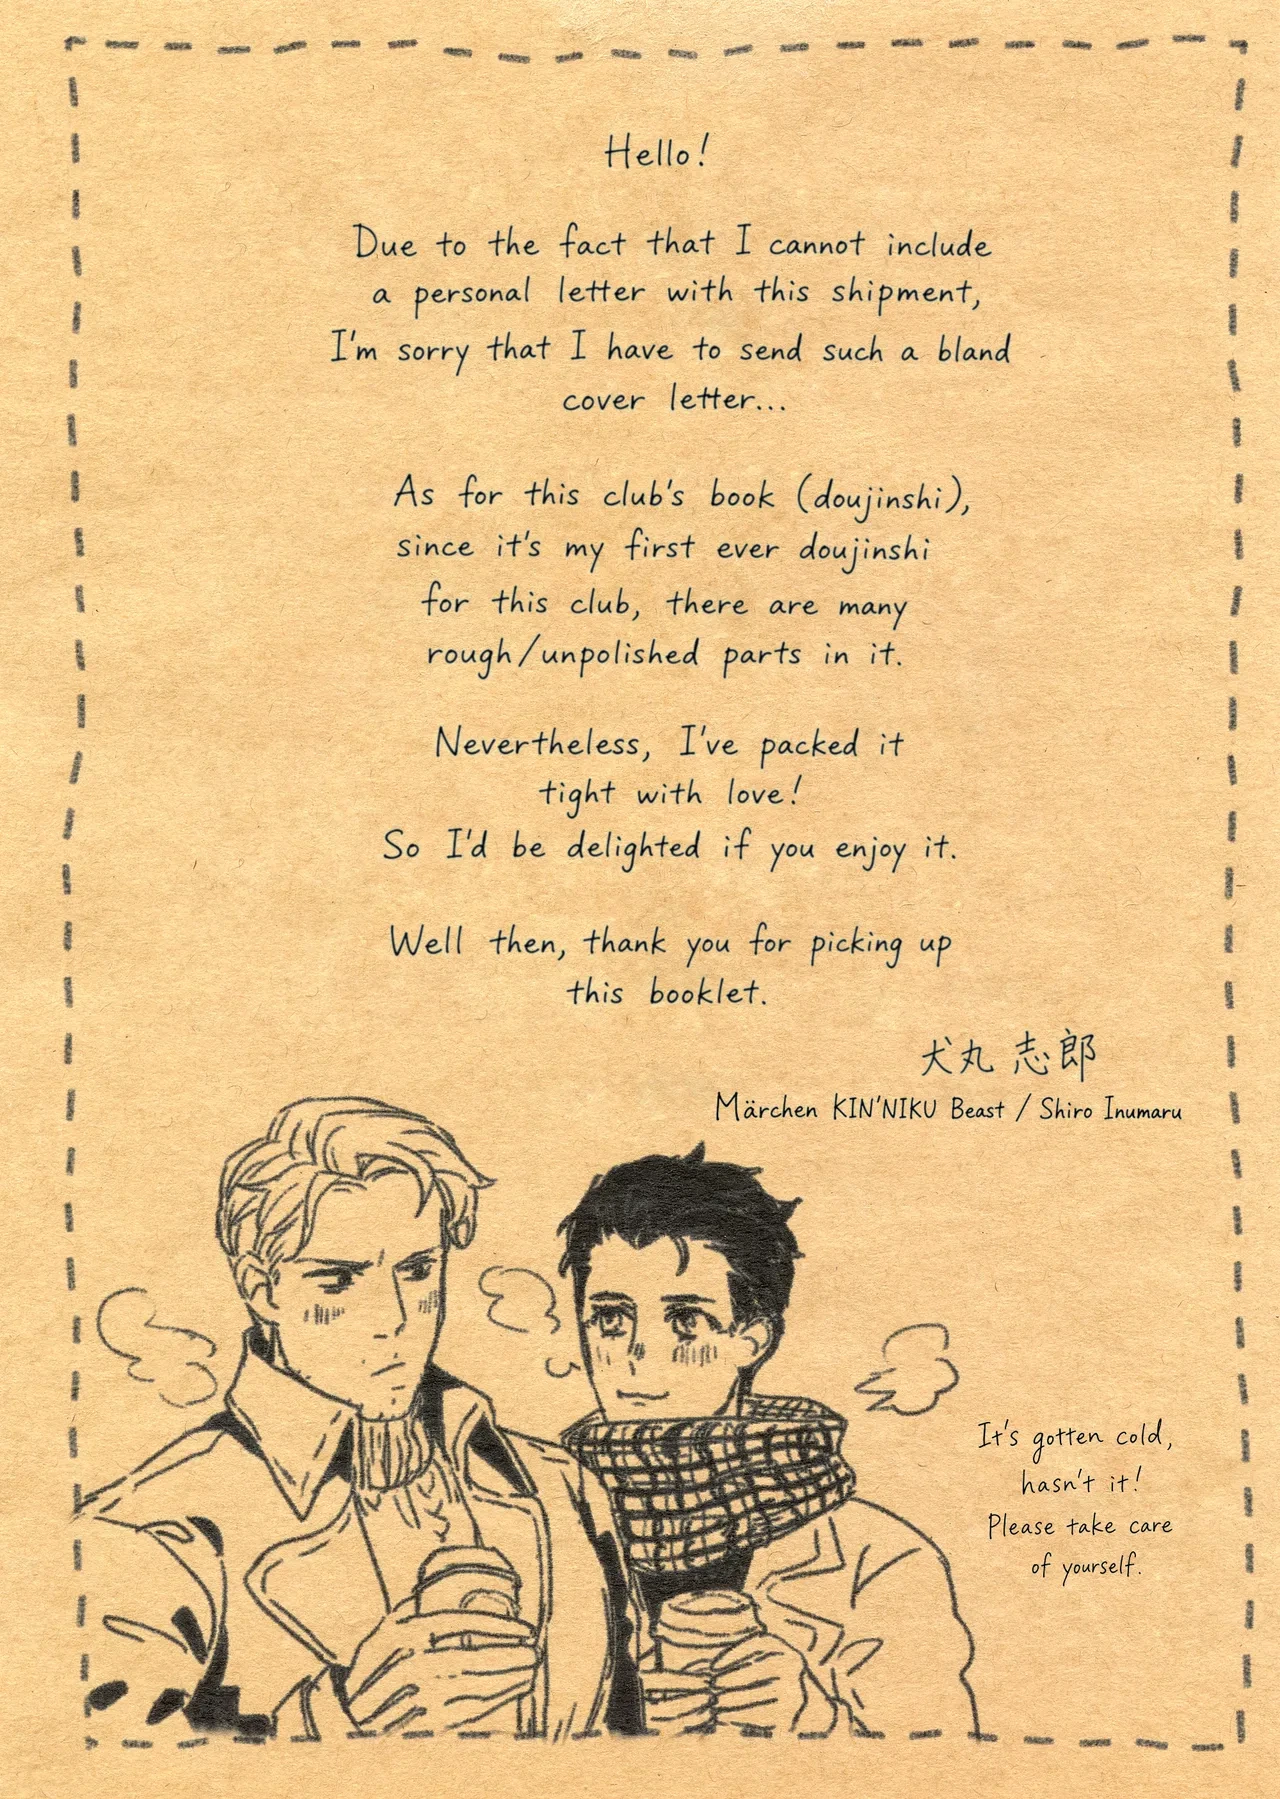 Hello!
Due to the fact that I cannot include
a personal letter with this shipment,
I'm sorry that I have to send such a bland
cover letter...
As for this club's book (doujinshi),
since it's my first ever doujinshi
for this club, there are many
rough/unpolished parts in it.
Nevertheless, I've packed it
tight with love!
So I'd be delighted if you enjoy it.
Well then, thank you for picking up
this booklet.
犬丸 志郎
Märchen KIN'NIKU Beast / Shiro Inumaru
It's gotten cold,
hasn't it!
Please take care
of yourself.